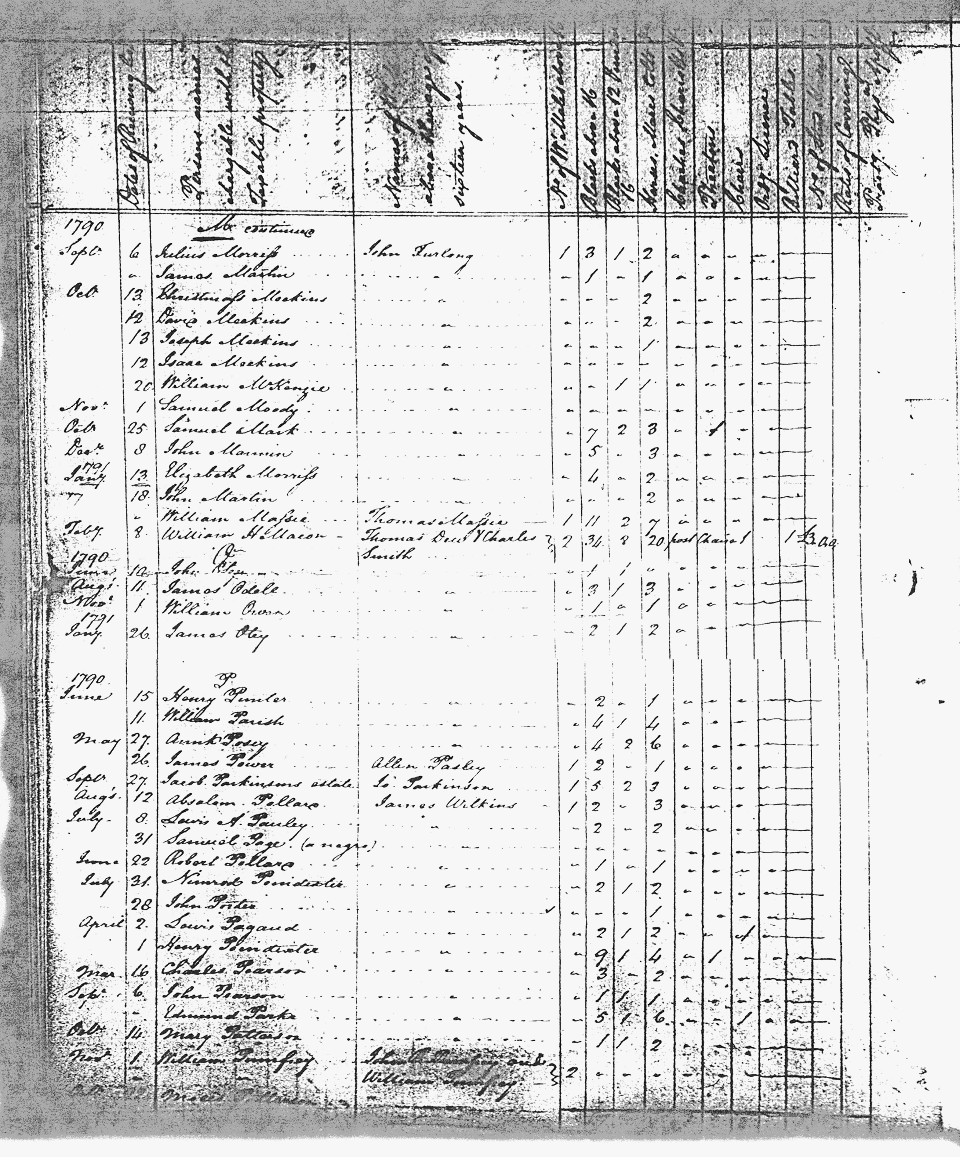 Dates of Receiving
Persons names chargeable with the Taxable property
Names of above the age of sixteen years
No of White
Blacks above 16
Blacks above 12 & under 16
Horses, Mares Colts
Coaches Chariots
Phaetons
Chairs
Ord. License
Billiard Table
No of
Rates of Covering
1790 M continued
Septr 6 Julius Morriss John Furlong 1 3 1 2 " " " "
" James Martin " " 1 " 1 " " "
Octr 13 Christmass Meekins " " " " 2 " " "
12 David Meekins " " " " 2 " " "
13 Joseph Meekins " " " " 1 " " "
12 Isaac Meekins " " " " " " " "
20 William McKenzie " " " 1 1 " " "
Novr 1 Samuel Moody " " " " " " " "
Octr 25 Samuel Mark " " 7 2 3 " 1 "
Decr 8 John Mannin " " 5 " 3 " " "
1791
Jany 13 Elizabeth Morriss " " 4 " 2 " " "
18 John Martin " " " " 2 " " "
" William Massie Thomas Massie 1 11 2 7 " " "
Feby 8 William H Macon Thomas Dew & Charles Smith 2 34 8 20 post Chaise 1 1
1790 O
June 10 John " 1 1 " " " "
Augt 11 James Odell " " 3 1 3 " " "
Novr 1 William Owen " 1 " 1 " " "
1791
Jany 26 James Otey " " 2 1 2 " " "
1790 P
June 15 Henry " " 2 " 1 " " "
11 William Parish " " 4 1 4 " " "
May 27 Posey " " 4 2 6 " " "
26 James Power Allen Pasley 1 2 " 1 " " "
Septr 27 Jacob Parkinsons estate Jo. Parkinson 1 5 2 3 " " "
Augt 12 Absolom Pollard James Wilkins 1 2 " 3 " " "
July 8 Lewis A Pauley " " 2 " 2 " " "
31 Samuel Page (a negro) " " " " " " " "
June 22 Robert Pollard " " 1 " 1 " " "
July 31 Nimrod Poindexter " " 2 1 2 " " "
28 John Porter " " " 1 " " "
April 2 Lewis Pagaud " " 2 1 2 " " 1
1 Henry Poindexter " " 9 1 4 " 1 "
Mar 16 Charles Pearson " " 3 " 2 " " "
Sepr 6 John Pearson " " 1 1 1 " " "
" Edmund Parke " " 5 1 6 " " 1
Octr 14 Mary Patterson " " 1 1 2 " " "
Novr 1 William Pumfrey John Pumfrey and
William Pumfrey 2 " " " " " "